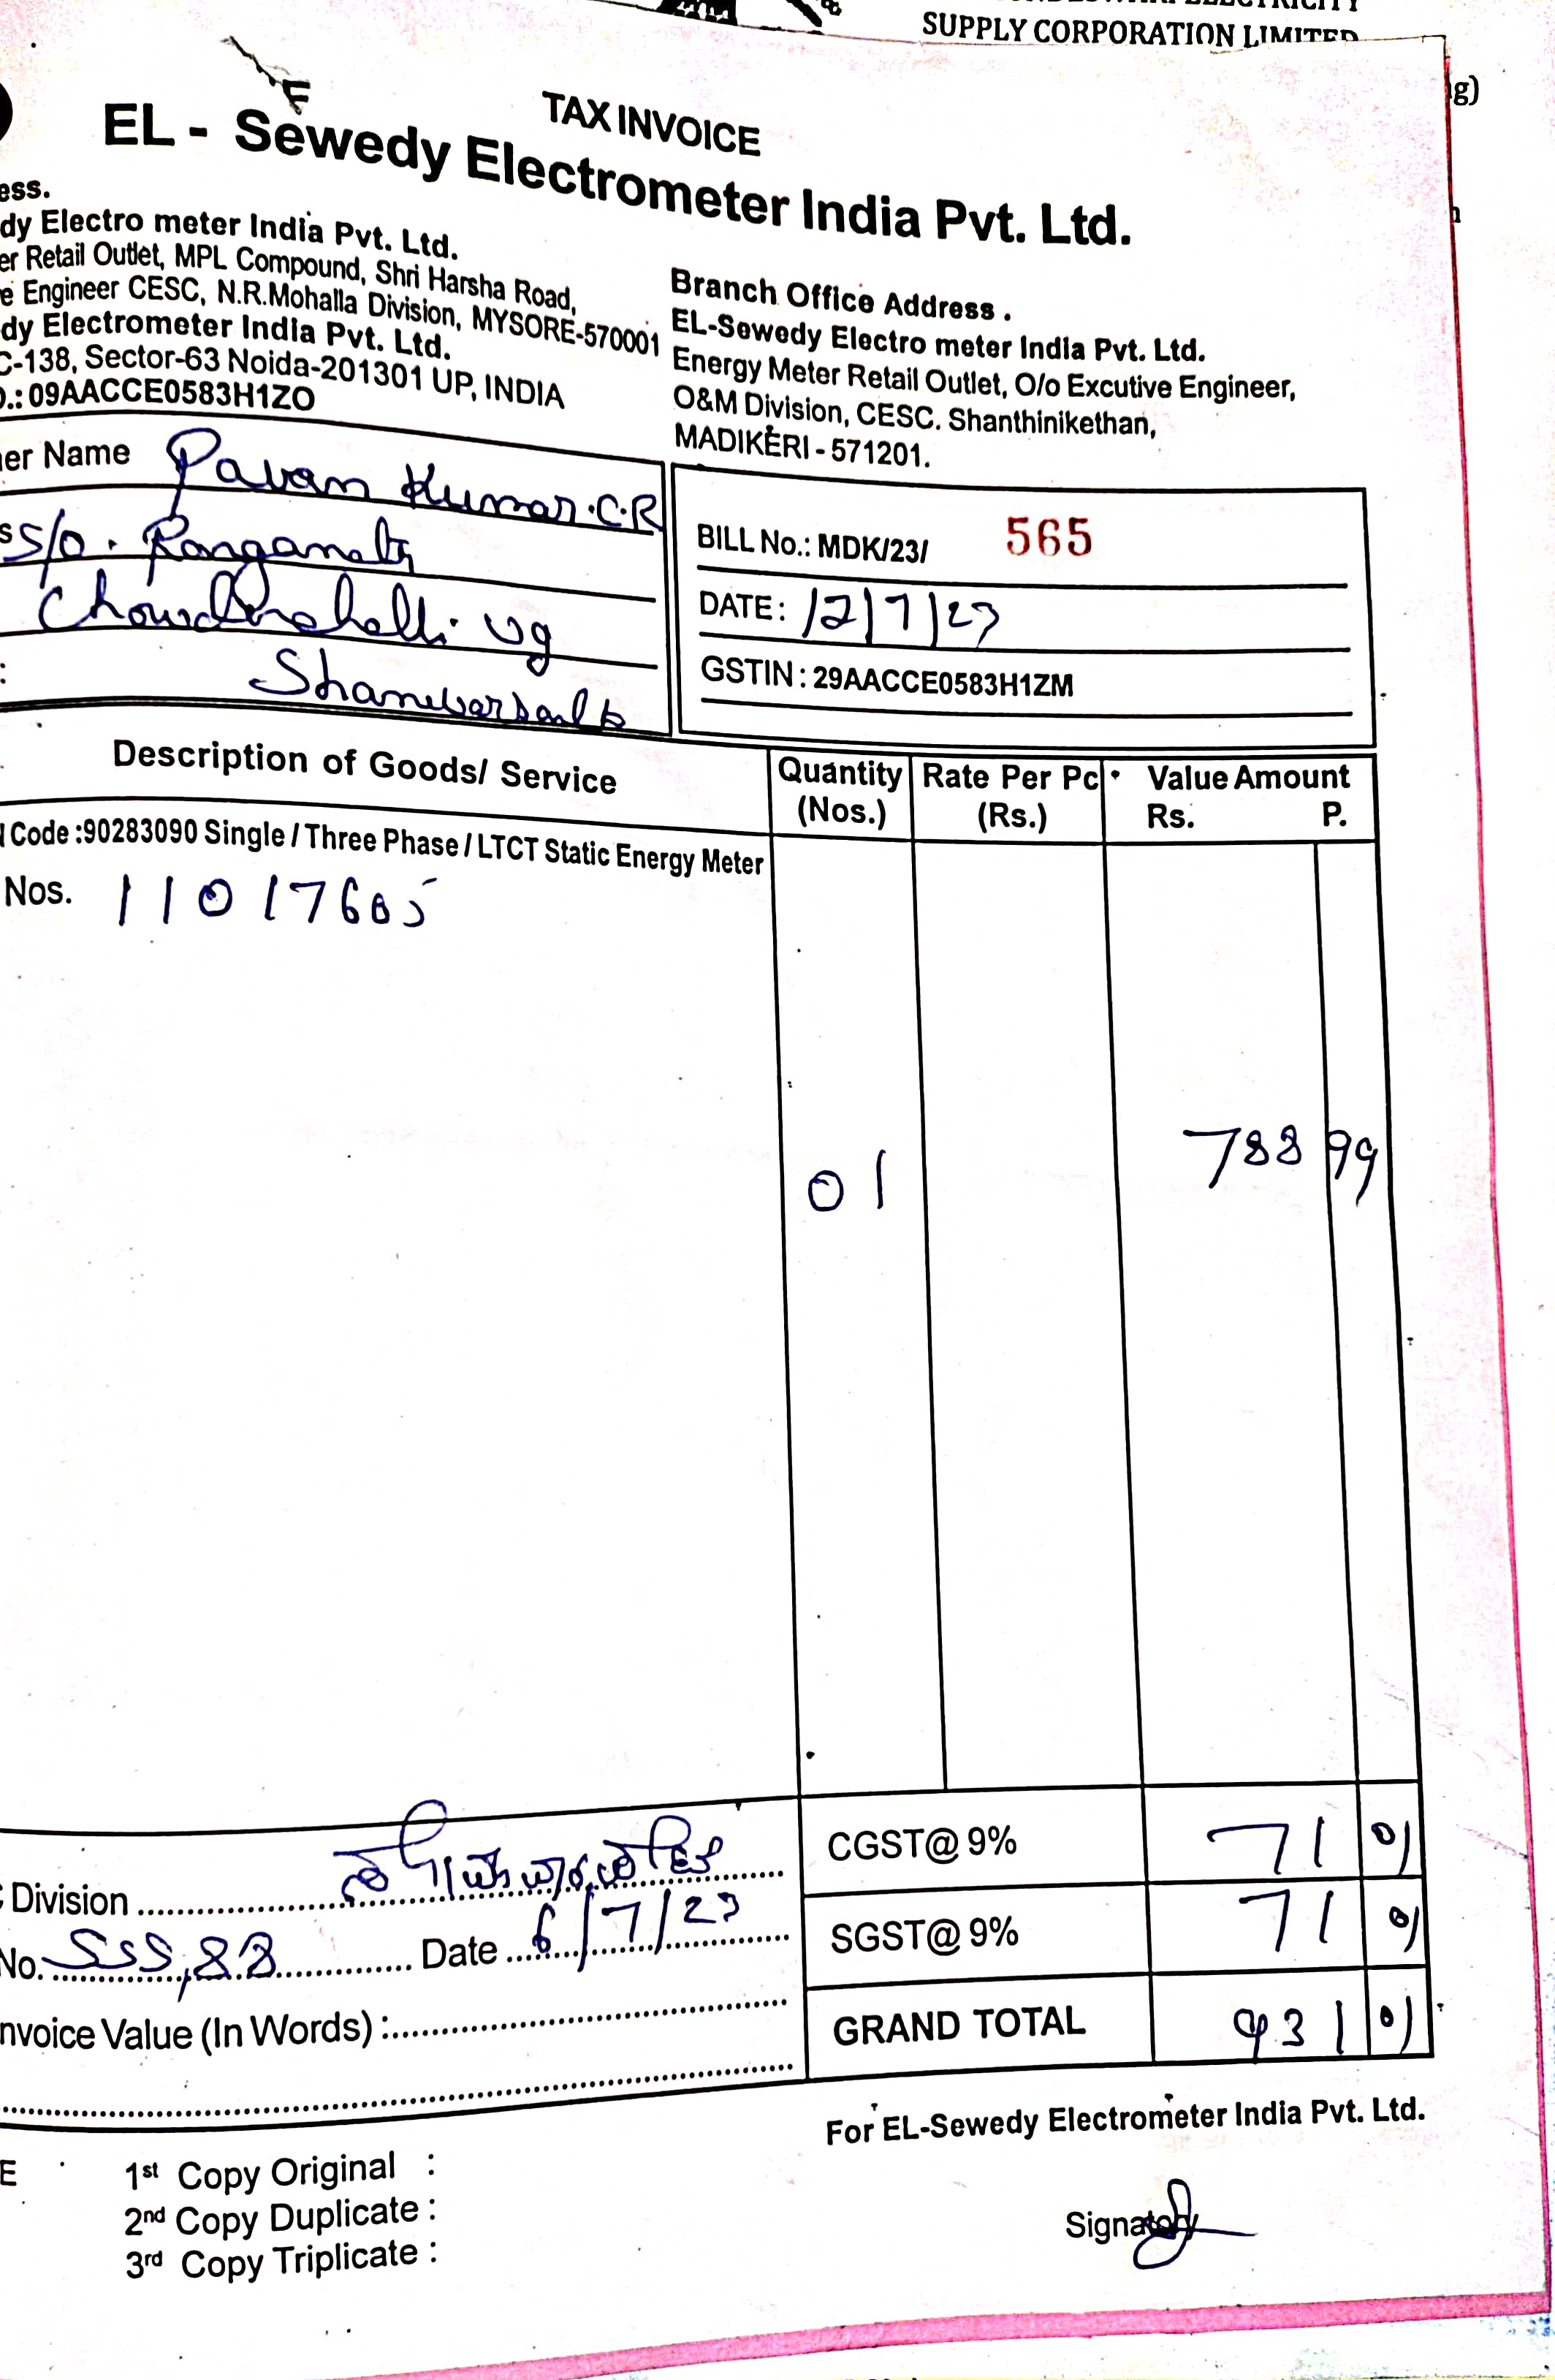 SUPPLY CORPORATION LIMITED
g)
TAX INVOICE
EL - Sewedy Electrometer India Pvt. Ltd.
ess.
dy Electro meter India Pvt. Ltd.
er Retail Outlet, MPL Compound, Shri Harsha Road,
e Engineer CESC, N.R.Mohalla Division, MYSORE-570001
dy Electrometer India Pvt. Ltd.
C-138, Sector-63 Noida-201301 UP, INDIA
O.: 09AACCE0583H1ZO
Branch Office Address .
EL-Sewedy Electro meter India Pvt. Ltd.
Energy Meter Retail Outlet, O/o Excutive Engineer,
O&M Division, CESC. Shanthinikethan,
MADIKERI - 571201.
er Name Pavan Kumar.C.R
s S/o. Ranganath
Chowdenahalli vg
: Shaniwarsanth
BILL No.: MDK/23/ 565
DATE: 12/7/23
GSTIN : 29AACCE0583H1ZM
Description of Goods/ Service Quantity (Nos.) Rate Per Pc (Rs.) Value Amount Rs. P.
Code :90283090 Single / Three Phase / LTCT Static Energy Meter
Nos. 11017605
01 788 99
CGST@ 9% 71 01
SGST@ 9% 71 01
GRAND TOTAL 931 01
Division
No. SSS,88 Date 6/7/23
nvoice Value (In Words) :
For EL-Sewedy Electrometer India Pvt. Ltd.
E 1st Copy Original :
2nd Copy Duplicate :
3rd Copy Triplicate :
Signatory